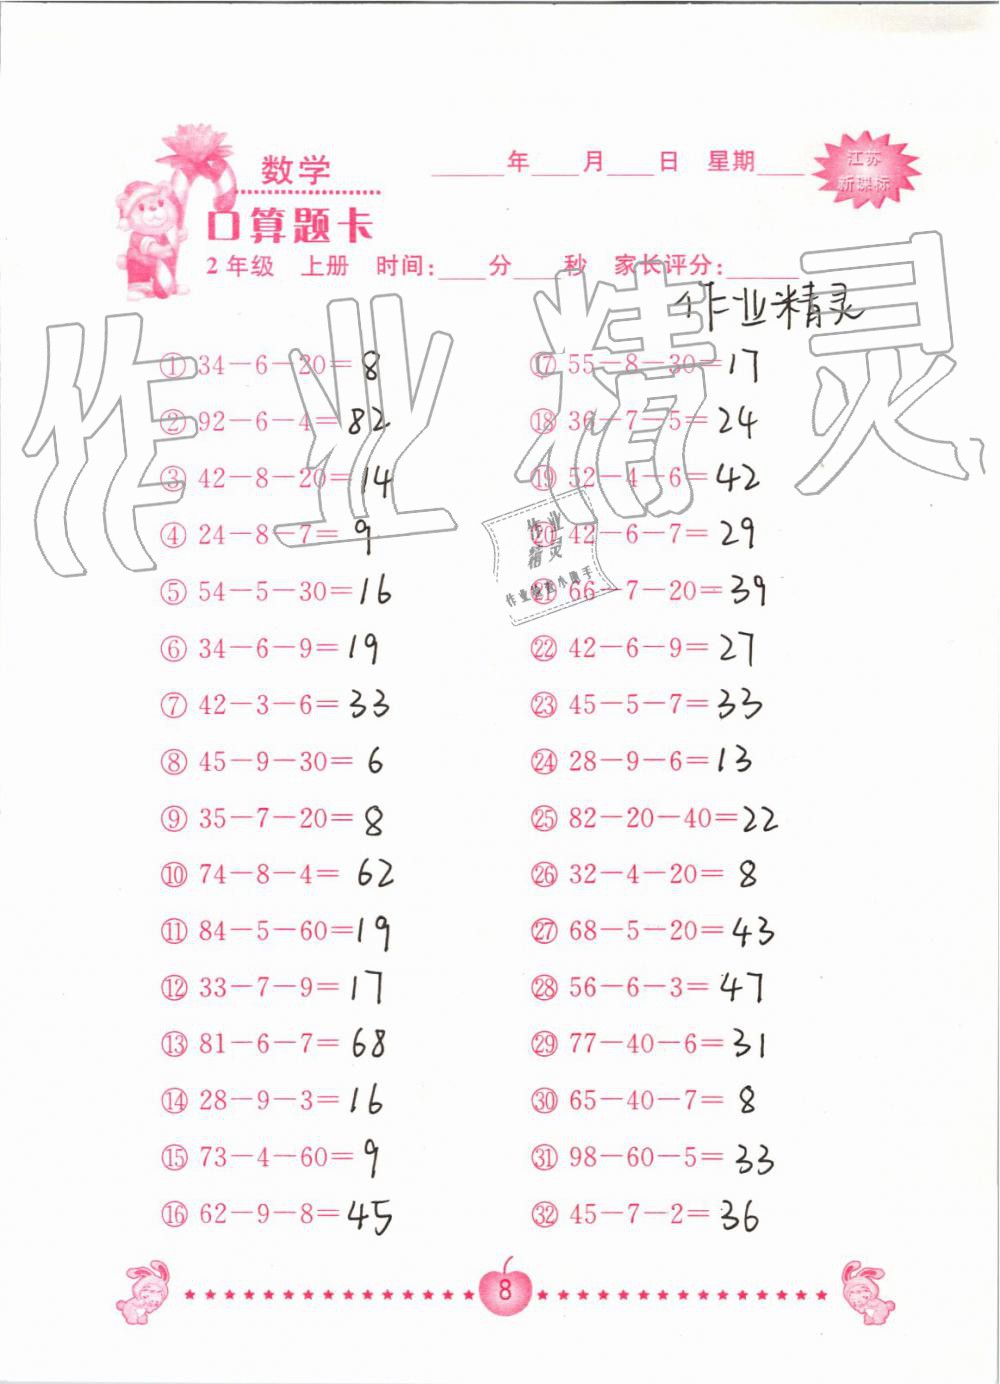 数学
____年____月____日 星期____
江苏
新课标
口算题卡
2年级 上册 时间:____分____秒 家长评分:______
作业精灵
作业精灵
① 34－6－20＝8
② 92－6－4＝82
③ 42－8－20＝14
④ 24－8－7＝9
⑤ 54－5－30＝16
⑥ 34－6－9＝19
⑦ 42－3－6＝33
⑧ 45－9－30＝6
⑨ 35－7－20＝8
⑩ 74－8－4＝62
⑪ 84－5－60＝19
⑫ 33－7－9＝17
⑬ 81－6－7＝68
⑭ 28－9－3＝16
⑮ 73－4－60＝9
⑯ 62－9－8＝45
⑰ 55－8－30＝17
⑱ 36－7－5＝24
⑲ 52－4－6＝42
⑳ 42－6－7＝29
㉑ 66－7－20＝39
㉒ 42－6－9＝27
㉓ 45－5－7＝33
㉔ 28－9－6＝13
㉕ 82－20－40＝22
㉖ 32－4－20＝8
㉗ 68－5－20＝43
㉘ 56－6－3＝47
㉙ 77－40－6＝31
㉚ 65－40－7＝8
㉛ 98－60－5＝33
㉜ 45－7－2＝36
作业
精灵
作业检查小助手
8